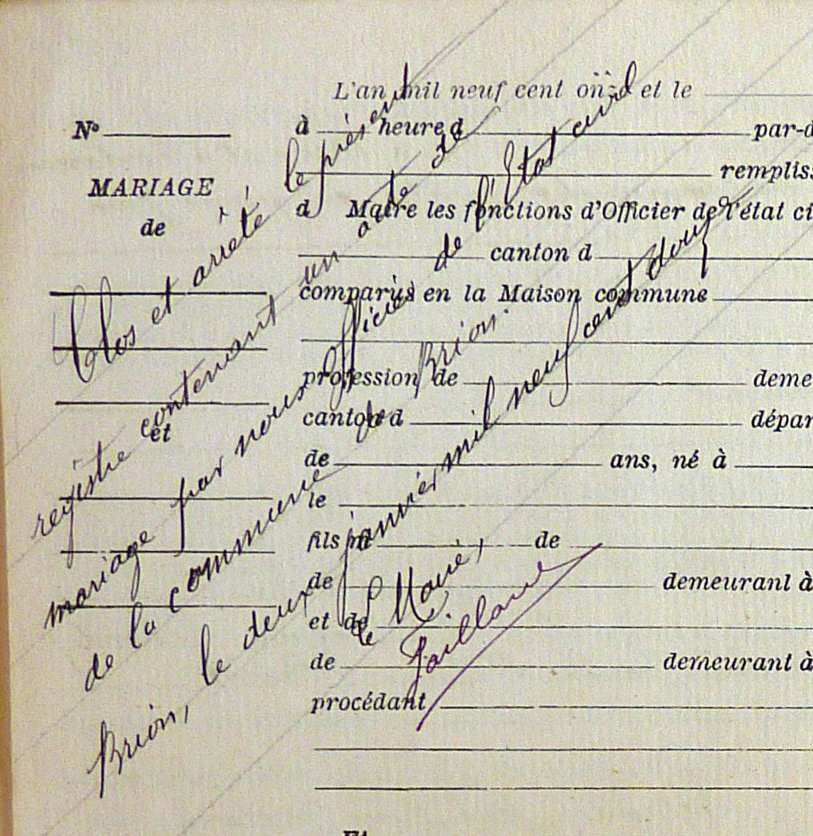 L'an mil neuf cent onze et le
N° à heure d par-d
MARIAGE rempliss
de d Maire les fonctions d'Officier de l'état ci
canton d
comparus en la Maison commune
profession de deme
et canton d dépar
de ans, né à
le
fils d de
de demeurant à
et de
de demeurant à
procédant
Clos et arrêté le présent
registre contenant un acte de
mariage par nous officier de l'Etat civil
de la commune de Brion.
Brion, le deux janvier mil neuf cent douze
Le Maire,